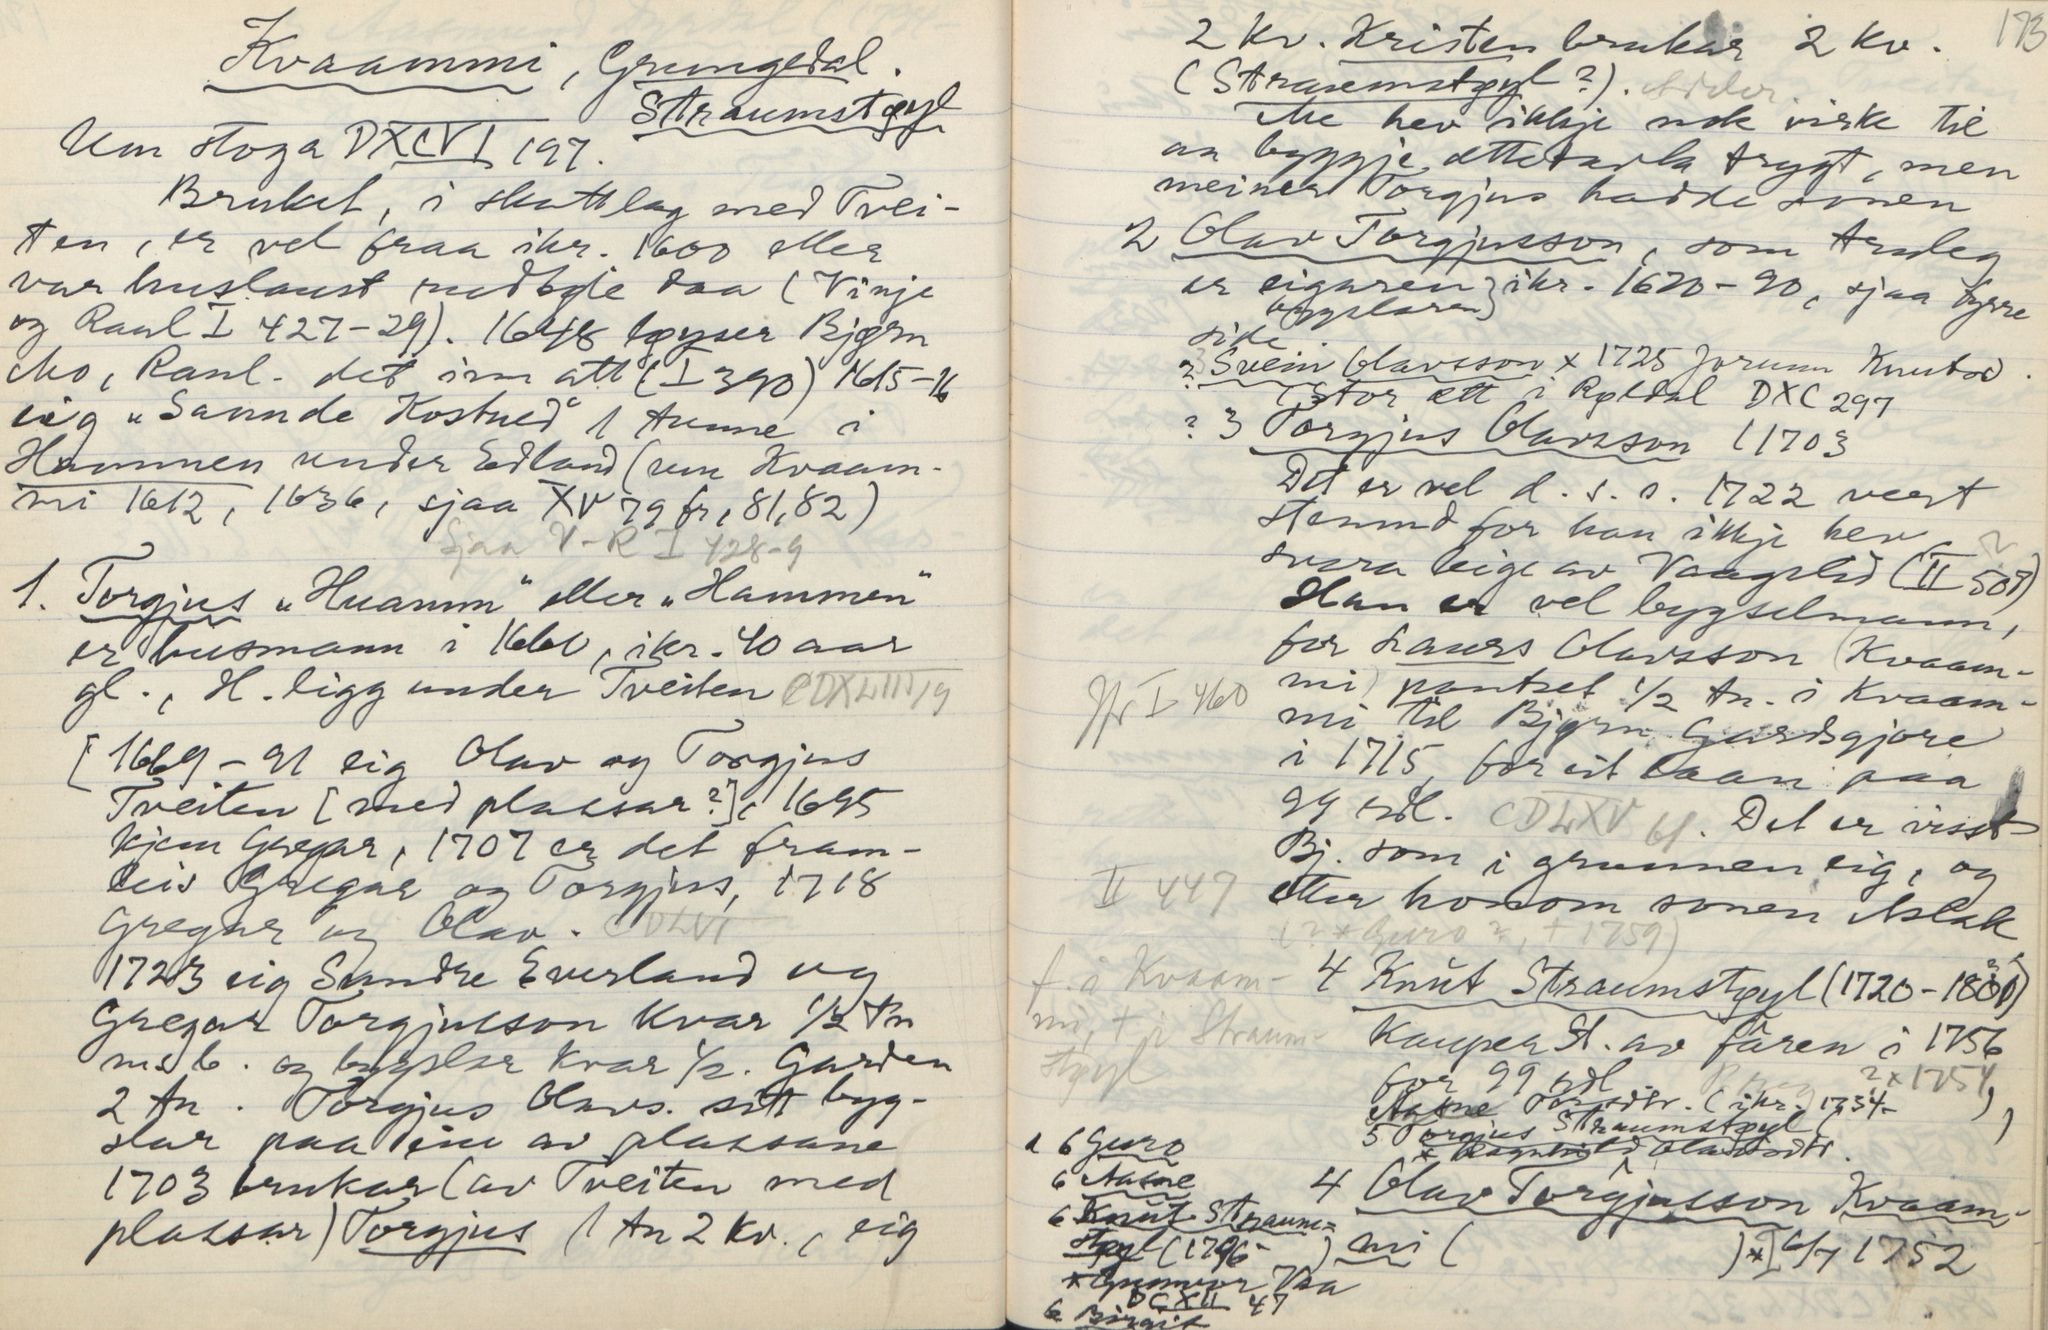 Kvaammi, Grungedal.
Straumstøyl
Um stoga DXCVI 197.
Bruket, i skattlag med Tvei-
ten, er vel fraa ikr. 1600 eller
var huslaust rudbøle daa (Vinje
og Raul I 427-29). 1648 løyser Bjørn
Mo, Raul. det inn att (I 390) 1615-16
eig "Sannde Kostued" 1 tunne i
Hammen under Edland (um Kvaam-
mi 1612, 1636, sjaa XV 79 fr, 81, 82)
Sjaa V-R I 428-9
1. Torgjus "Huamm" eller "Hammen"
er husmann i 1660, ikr. 40 aar
gl., H. ligg under Tveiten CDXLIII 19
[1669-91 eig Olav og Torgjus
Tveiten [med plassar?], 1695
kjem Gregar, 1707 er det fram-
leis Gregar og Torgjus, 1718
Gregar og Olav. CDLVI
1723 eig Sundre Everland og
Gregar Torgjusson kvar 1/2 tn
m. b. og bygslar kvar 1/2. Garden
2 tn. Torgjus Olavs. sitt byg-
slar paa ein av plassane
1703 brukar (av Tveiten med
plassar) Torgjus 1 tn 2 kv., eig
173
2 kv. Kristen brukar 2 kv.
(Straumstøyl?).
Me hev ikkje nok viske til
aa byggje ættetavla trygt, men
meiner Torgjus hadde sonen
2 Olav Torgjusson, som truleg
er eigaren} ikr. 1670-90, sjaa fyrre
bygslaren}
side
?3 Svein Olavsson x 1725 Jorunn Knutsd.
(Stor ætt i Røldal DXC 297
? 3 Torgjus Olavsson (1703
Det er vel d. s. s. 1722 vert
stemnd for han ikkje hev
svara leige av Vaagslid (II 507)
Han er vel bygselmann,
for Laurs Olavsson (Kvaam-
mi) pantset 1/2 tn. i Kvaam-
Jfr I 460
mi til Bjørn Gardsgjore
i 1715, for eit laan paa
99 rdl. CDLXV 61. Det er visst
Bj. som i grunnen eig, og
II 447
etter honom sonen Aslak
(? * Guro ?, + 1759)
f. i Kvaam-
mi, + i Straum-
støyl
4 Knut Straumstøyl (1720-1800)
kaupen St. av fåren i 1756
for 99 rdl ? x 1754,
Aasne Torsdtr. (ikr. 1734- ),
5 Torgjus Straumstøyl ( )
* Ragnhild Olavsdtr.
6 Guro
6 Aasne
6 Knut Straum-
støyl (1796- )
* Gunnvor Vaa
DCXII 47
6 Birgit
4 Olav Torgjusson Kvaam-
mi ( ) *I 6/7 1752